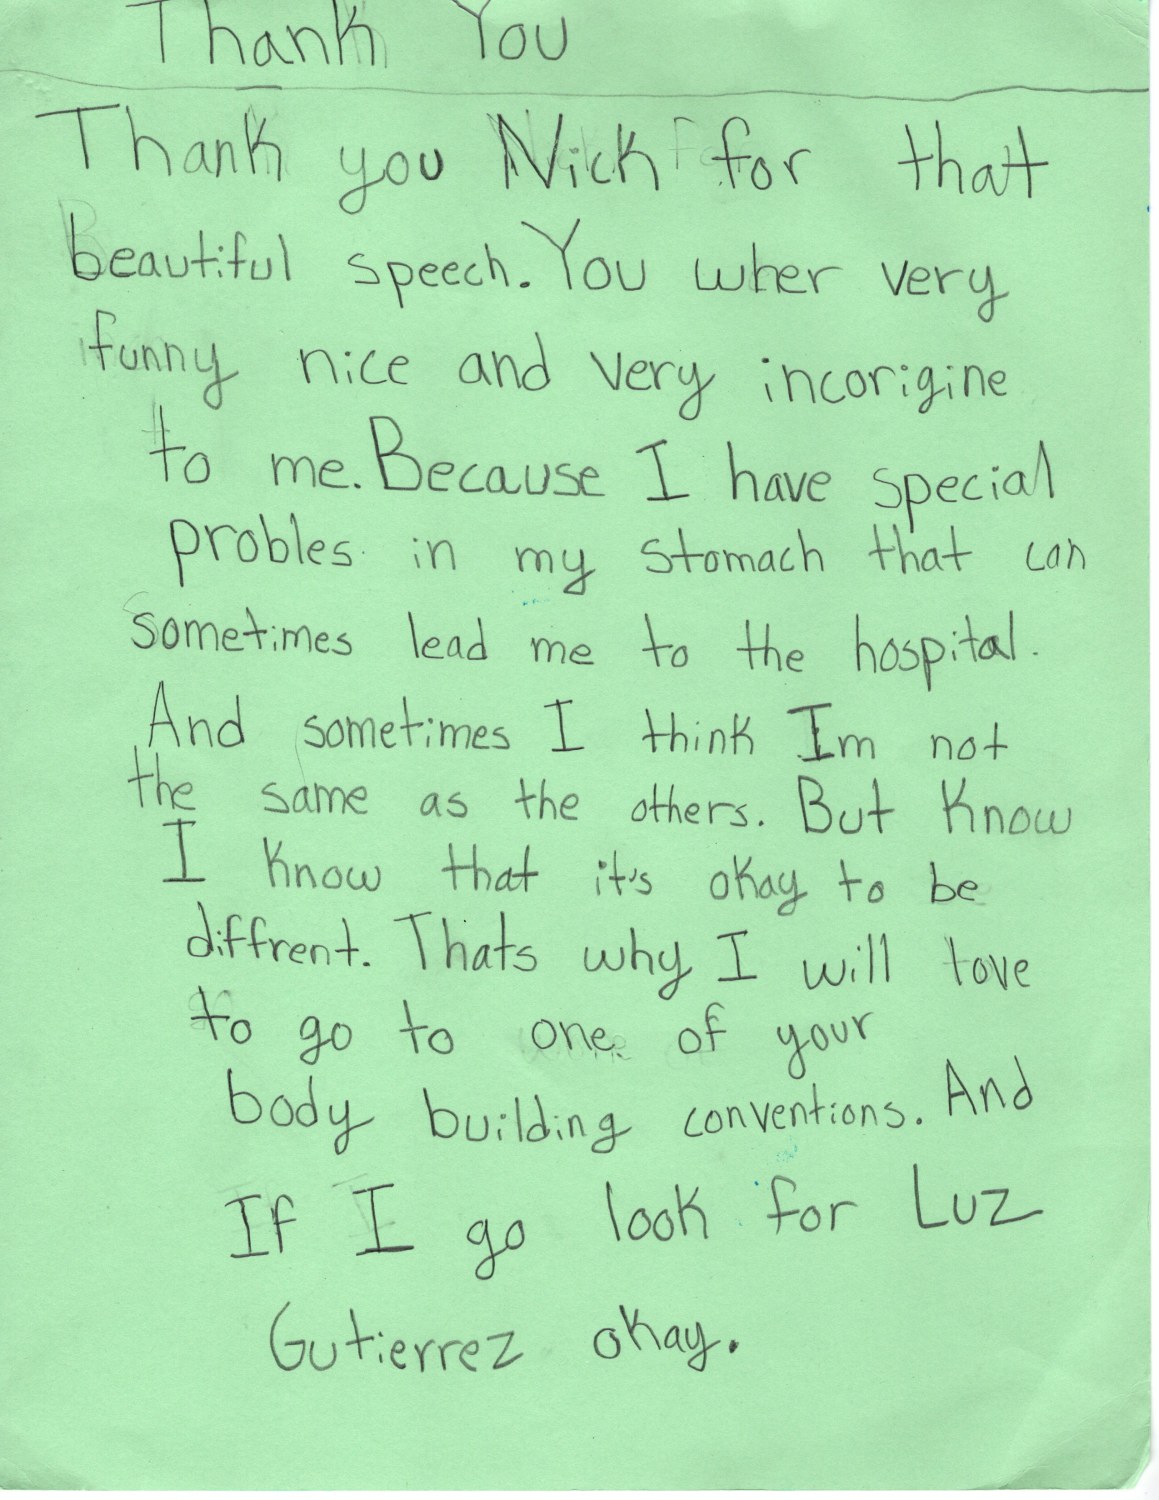 Thank You
Thank you Nick for that
beautiful speech. You wher very
funny nice and very incorigine
to me. Because I have special
probles in my stomach that can
sometimes lead me to the hospital.
And sometimes I think Im not
the same as the others. But Know
I know that it's okay to be
diffrent. Thats why I will love
to go to one of your
body building conventions. And
If I go look for Luz
Gutierrez okay.